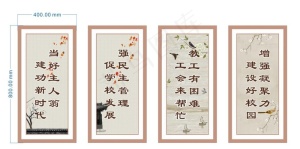 400.00mm
800.00mm
当好主人翁
建功新时代
强民主管理
促学校发展
我工有困难
工会来帮忙
增强凝聚力
建设好校园